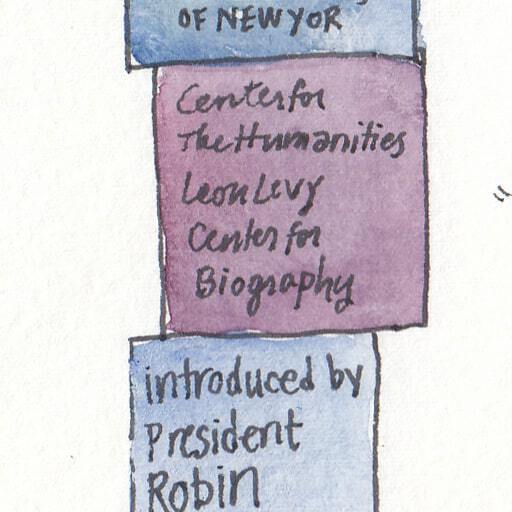 OF NEW YOR
Center for
The Humanities
Leon Levy
Center for
Biography
introduced by
President
Robin